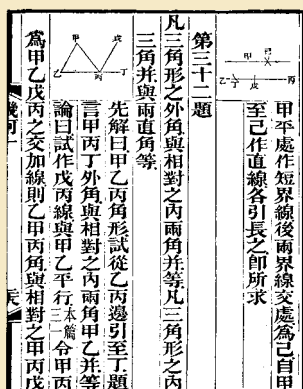 甲平處作短界線後兩界線交處為己自甲
至己作直線各引長之即所求
第三十二題
凡三角形之外角與相對之內兩角并等凡三角形之內
三角并與兩直角等
甲 戊
乙 丙 丁
先解曰甲乙丙角形試從乙丙邊引至丁題
言甲丙丁外角與相對之內兩角甲乙并等
論曰試作戊丙線與甲乙平行本篇三一令甲丙
為甲乙戊丙之交加線則乙甲丙角與相對之甲丙戊
幾何一